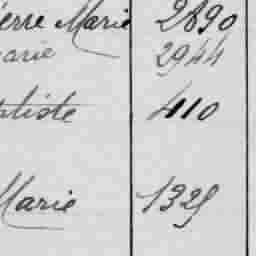 erre Marie 2890
arie 2944
ptiste 410
Marie 1325